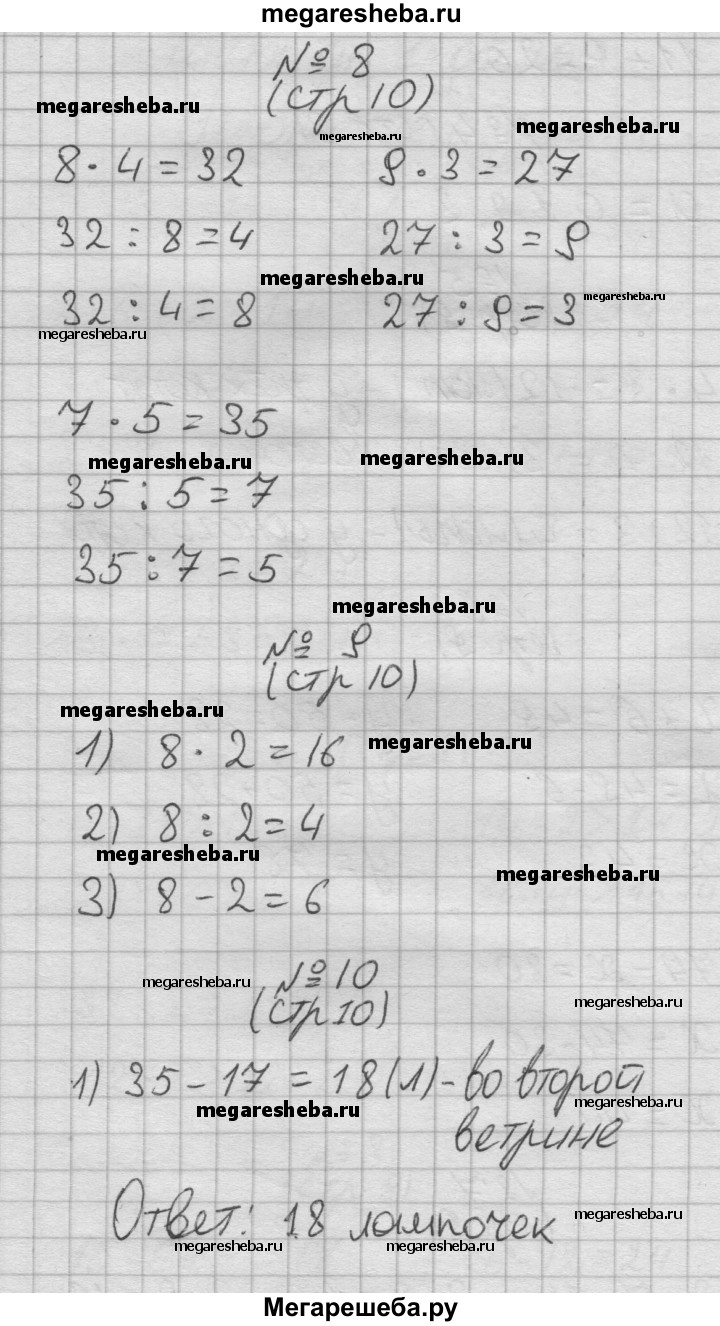 megaresheba.ru
№ 8
(стр 10)
megaresheba.ru
megaresheba.ru
megaresheba.ru
8 · 4 = 32 9 · 3 = 27
32 : 8 = 4 27 : 3 = 9
megaresheba.ru
32 : 4 = 8 27 : 9 = 3
megaresheba.ru
megaresheba.ru
7 · 5 = 35
megaresheba.ru
megaresheba.ru
35 : 5 = 7
35 : 7 = 5
megaresheba.ru
№ 9
(стр 10)
megaresheba.ru
1) 8 · 2 = 16
megaresheba.ru
2) 8 : 2 = 4
megaresheba.ru
megaresheba.ru
3) 8 - 2 = 6
megaresheba.ru
№ 10
(стр 10)
megaresheba.ru
1) 35 - 17 = 18 (л) - во второй
megaresheba.ru
megaresheba.ru
ветрине
Ответ: 18 лампочек
megaresheba.ru
megaresheba.ru
megaresheba.ru
Мегарешеба.ру